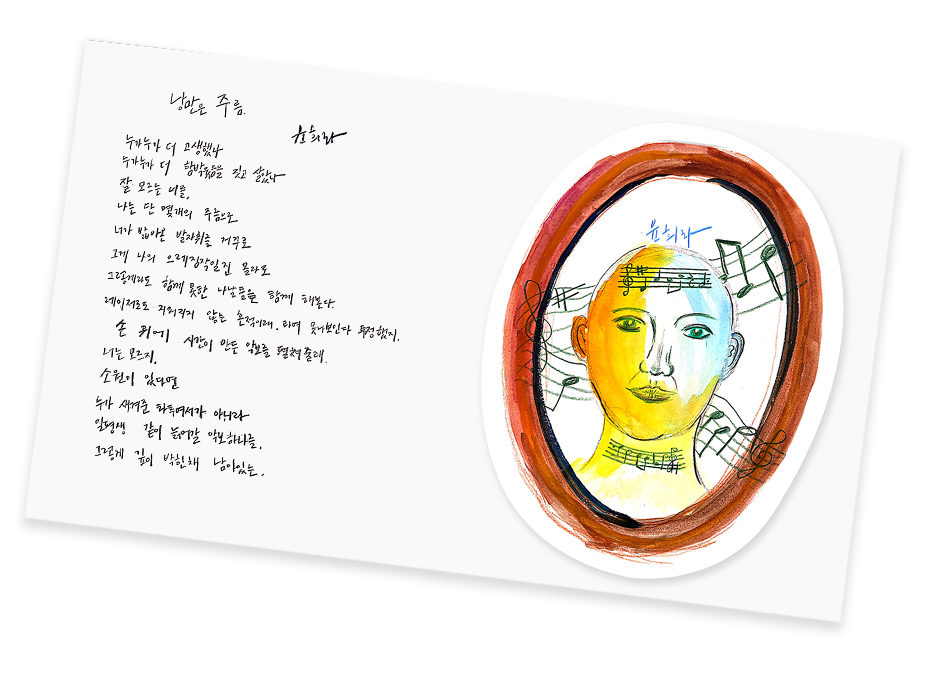 낭만은 주름.
윤희라
누가누가 더 고생했나
누가누가 더 함박웃음을 짓고 살았나
잘 모르는 너를,
나는 단 몇개의 주름으로
너가 밟아온 발자취를 거꾸로
그게 나의 으레짐작일진 몰라도
그렇게라도 함께 못한 나날들을 함께 해본다.
레이저로도 지워지지 않는 흔적이래. 라며 못나보인다 투정했지.
손 위에 시간이 만든 악보를 펼쳐줄래.
너는 모르지,
소원이 있다면
누가 새겨준 타투여서가 아니라
일평생 같이 늙어갈 악보하나를,
그렇게 깊이 박힌채 남아있는,
윤희라